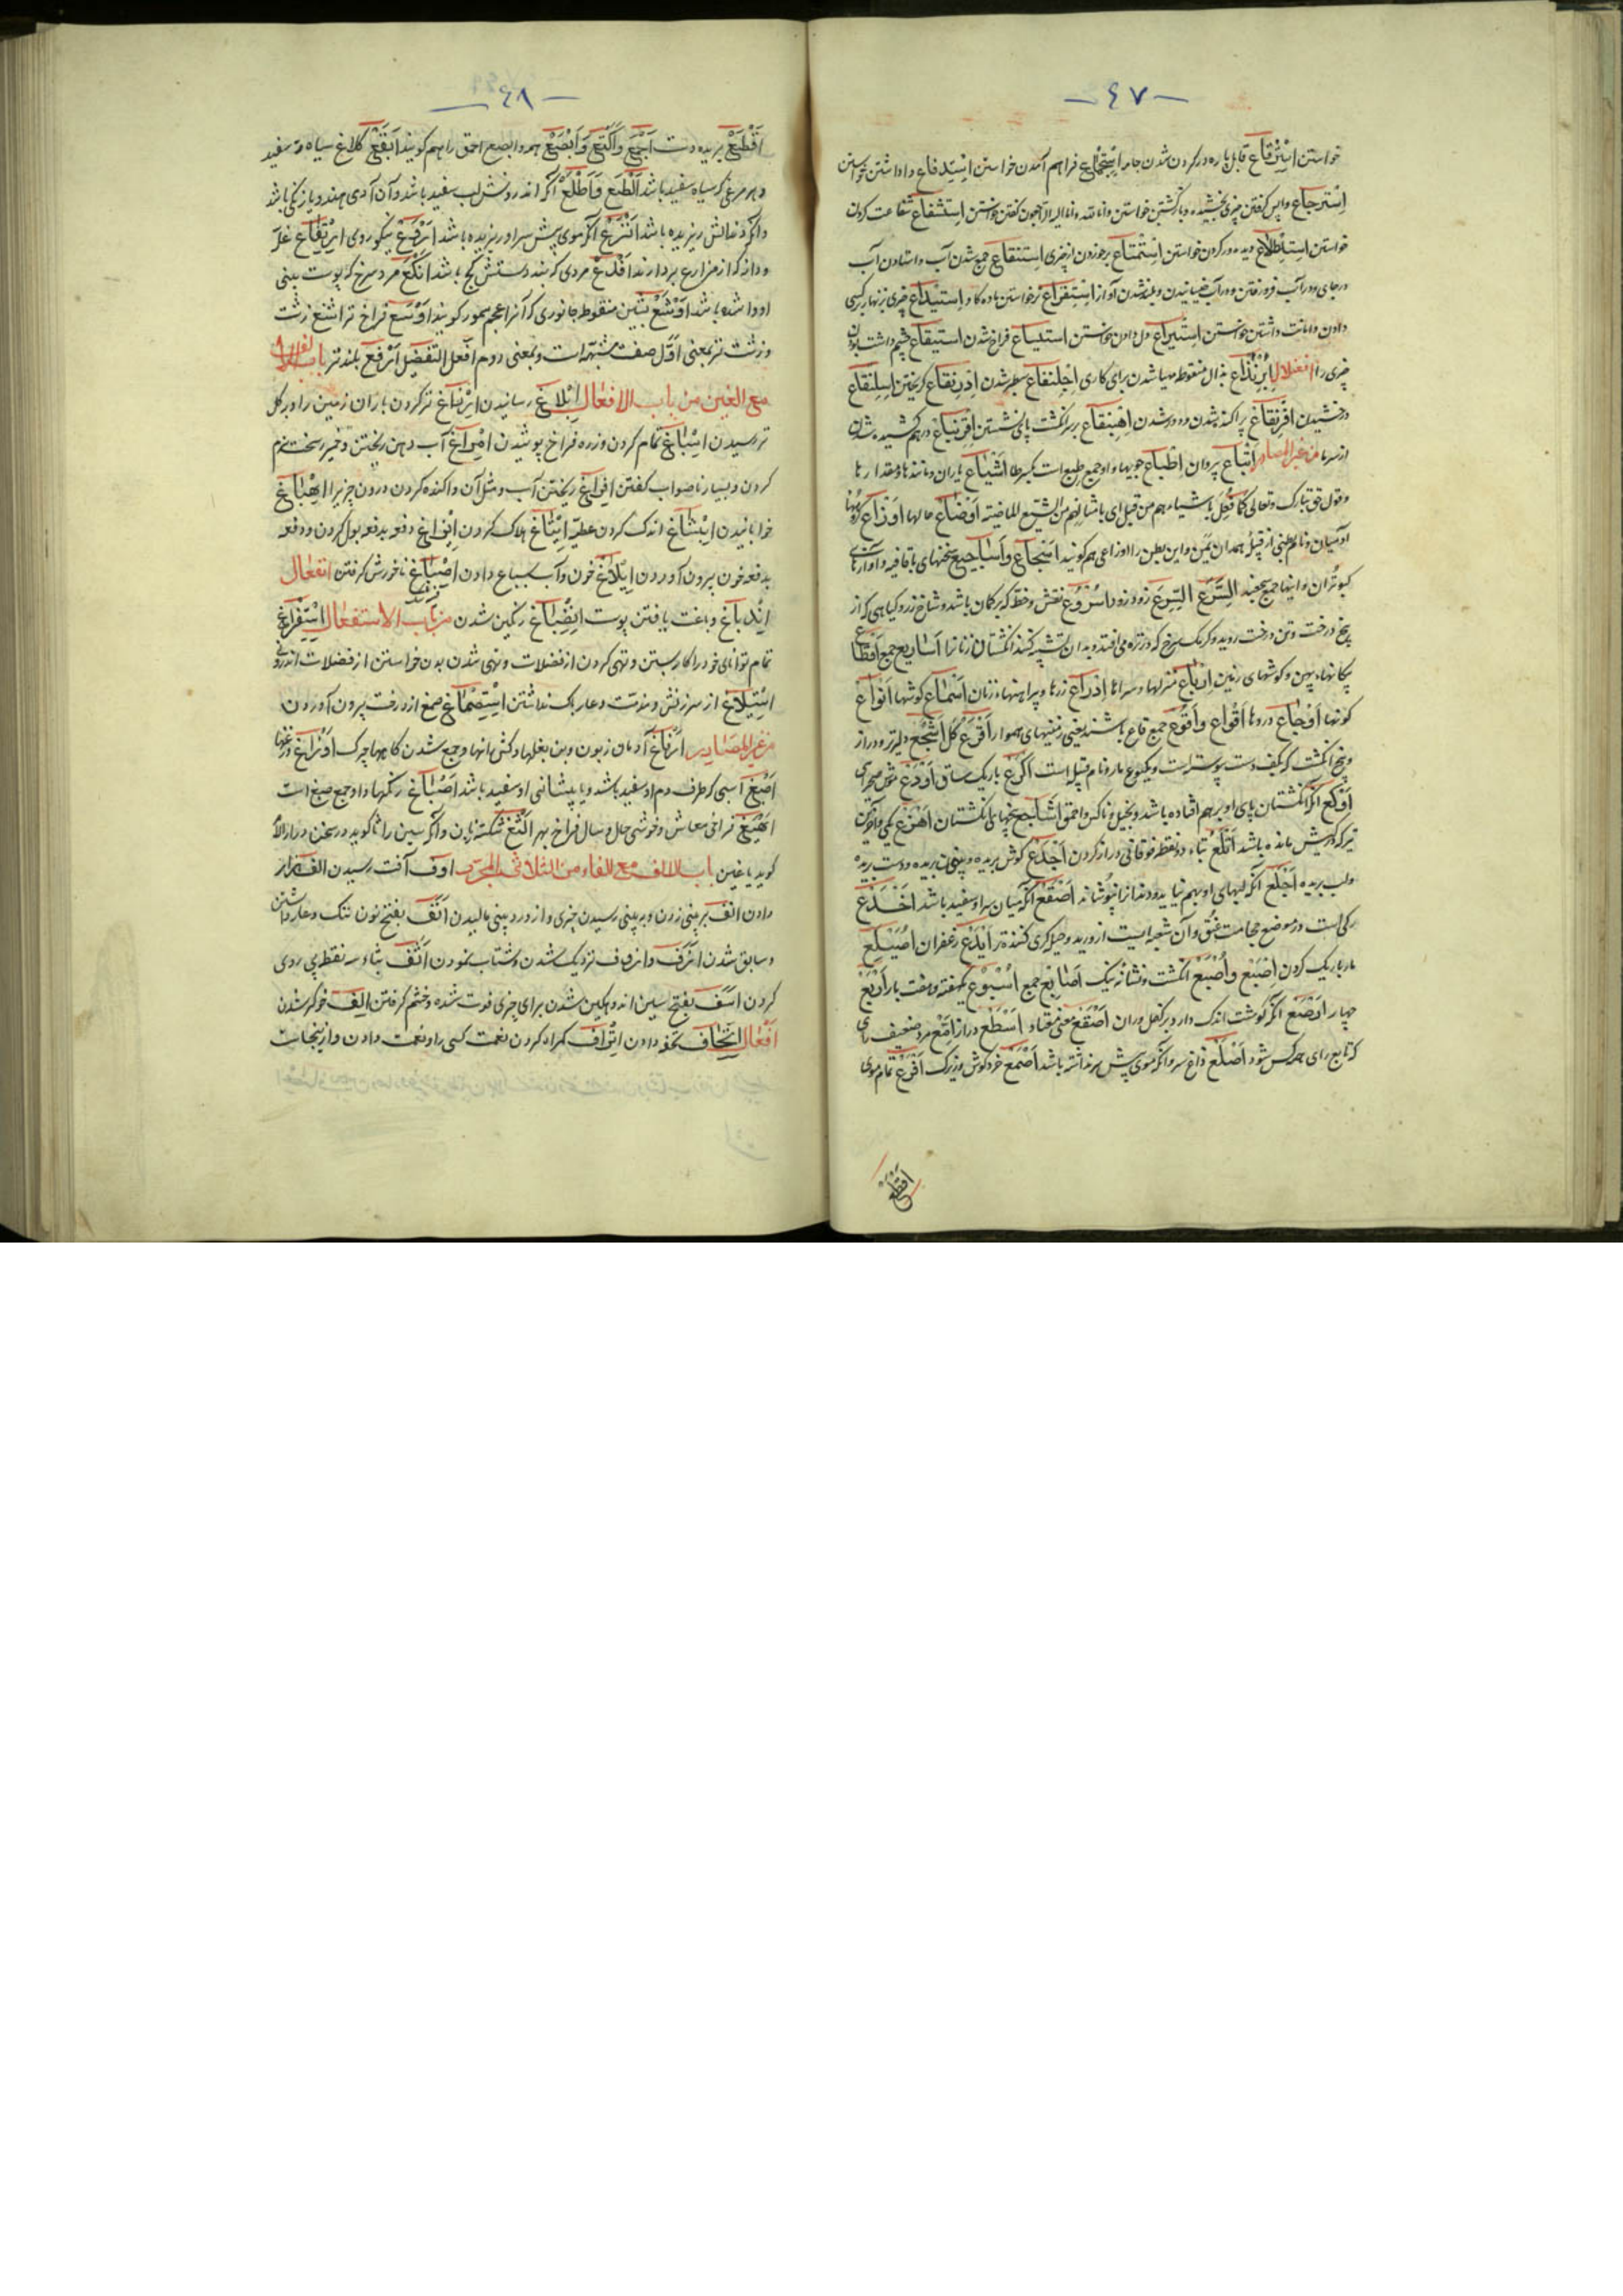 ـ ٤٧ ـ
خواستن اِسْتِرْقاع قابل پاره در کردن شدن جامه اِسْتِجْماع فراهم آمدن خواستن اِسْتِدْفاع وا داشتن خواستن
اِسْتِرجاع واپس گرفتن چیزی بخشیده و بازگشتن خواستن و انا لله و انا الیه راجعون گفتن خواستن اِستشفاع شفاعت کردن
خواستن اِستِطْلاع دیده ور کردن خواستن اِسْتِمْتاع برخوردن از چیزی اِستنقاع جمع شدن آب و استادن آب
در جای و در آب فرو رفتن و در آب خیسانیدن و بلند شدن آواز اِستِفراع خواستن ماده کاو اِستیداع چیزی بزنهار بکسی
دادن و امانت داشتن خواستن اِستیزاع دل دادن خواستن استیساع فراخ شدن استیقاع چشم داشت بودن
چیزی را افعنلال اِبْرِنْذاع بذال منقوطه مهیا شدن برای کاری اِجْلِنْفاع سطبر شدن اِدْرِنقاع گریختن اِسْلِنْقاع
درخشیدن اِفْرِنْقاع پراکنده شدن و دور شدن اِهْبِنْقاع بر سر انگشت پای نشستن اِقْرِنْباع در هم کشیده شدن
از سرما من غیر المصادر اَتْباع پیروان اَطْباع جویها و او جمع طبع است بکسر طا اَشْیاع یاران و مانندها و مقدارها
و قول حق تبارک و تعالی کما فُعِلَ باشیاعهم من قبل ای باشالهم من الشیع الماضیة اَوْضاع حالها اَوْزاع گروهها
آدمیان و نام بطنی از قبیلۀ همدان یمن و این بطن را اوزاعی هم گویند اَسْجاع و اَساجیع سخنهای با قافیه و آوازهای
کبوتران و اینها جمع سجعند اَسْرَع اَلسَّرْع زود زود اُسْرُوع نقش و خط که بر کمان باشد و شاخ زرد و گیاهی که از
بیخ درخت و تن درخت روید و کرمک سرخ که در تره می افتد و بدان تشبیه کنند انگشتان زنانرا اَساریع جمع اَقْطاع
پیکانهاء پهن و گوشهای زمین اَرْباع منزلها و سراها اَدْراع زرها و پیراهنهاء زنان اَسْماع گوشها اَنْواع
گونها اَوْجاع دردها اَقْواع و اَقْوُع جمع قاع باشند یعنی زمینهای هموار اَقْرَع کل اَشْجَع دلیرتر و دراز
و بیخ انگشت که بکف دست پیوسته است و یکنوع مار و نام قبیله است اَکْرَع باریک ساق اَوْدَع موش صحرای
اَوْکَع اگر انگشتان پای او بر هم افتاده باشد و بخیل و ناکس و احمق اَشاجِع بیخهای انگشتان اَهْزَع
تیر که در کیش مانده باشد اَتْلَع بتاء دو نقطه فوقانی دراز گردن اَجْدَع گوش بریده و بینی بریده و دست بریده
و لب بریده اَجْلَع اگر لبهای او بهم نیاید و دندانرا نپوشاند اَصْقَع اگر میان سر او سفید باشد اَخْدَع
رگی است در موضع حجامت عنق و آن شعبه ایست از ورید و حیله گری کننده تر اَیْدَع زعفران اُصَیْلِع
مار باریک گردن اِصْبَع و اُصْبُع انگشت و نشانه نیک اَصابِع جمع اُسْبُوع یکهفته و هفت بار اَرْبَع
چهار اَرْصَع اگر گوشت اندک دارد بر کفل و ران اَسْطَع دراز اِمَّع مرد ضعیف رای
که تابع رای همه کس شود اَصْلَع داغ سر و اگر موی پیش سر نداشته باشد اَصْمَع خرد گوش و زیرک اَفْرَع تمام موی
اَقْطَع
ـ ٤٨ ـ
اَقْطَع بریده دست اَجْمَع و اَکْتَع و اَبْصَع همه و ابصع احمق را هم گویند اَبْقَع کلاغ سیاه و سفید
و هر مرغی که سیاه سفید باشد اَلْطَع و اَطْلَع اگر اندرونش لب سفید باشد و آن آدمی هندو یا زنگی باشد
و اگر دندانش ریزیده باشد اَنْزَع اگر موی پیش سر او ریزیده باشد اَرْوَع نیکو روی اِرْتِفاع غله
و دانه که از مزارع بردارند اَفْدَع مردی که بند دستش کج باشد اَنْکَع مرد سرخ که پوست بینی
او وا شده باشد اَوْشَع بشین منقوطه جانوری که آنرا عجم سمور گویند اَوْسَع فراخ تر اَشْنَع زشت
و زشت تر بمعنی اوّل صفت مشبّهه است و بمعنی دوم افعل التفضیل اَرْفَع بلندتر باب الالف
مع الغین من باب الافعال اِبْلاغ رسانیدن اِرْزاغ تر کردن باران زمین را و بر گل
تر رسیدن اِسْباغ تمام کردن و زره فراخ پوشیدن اِمْراغ آب دهن ریختن و خمیر سخت نرم
کردن و بسیار ناصواب گفتن اِفْراغ ریختن آب و مثل آن و آکنده کردن درون چیزیرا اِهْباغ
خوابانیدن اِیْشاغ اندک کردن عطیّه اِیْتاغ هلاک کردن اِیْزاغ دفعه بدفعه بول کردن و دفعه
بدفعه خون بیرون آوردن اِیْلاغ خون و آب بسباع دادن اِصْباغ نانخورش گرفتن انفعال
اِنْدِباغ دباغت یافتن پوست اِنْصِباغ رنگین شدن من باب الاستفعال اِسْتِفْراغ
تمام توانای خود را بکار بستن و تهی کردن از فضلات و تهی شدن بدن خواستن از فضلات اندرونی
اِسْتیلاغ از سرزنش و مذمت و عار باک نداشتن اِسْتِصْماغ صمغ از درخت بیرون آوردن
من غیر المصادر اَرْفاغ آدمیان زبون و بن بغلها و کش رانها و جمع شدن گاهها چرک اَوْزاغ وزغها
اَصْبَغ اسبی که طرف دم او سفید باشد و یا پیشانی او سفید باشد اَصْباغ رنگها و او جمع صبغ است
اَهْیَغ فراخی معاش و خوشی حال و سال فراخ بهر اَلْثَغ شکسته زبان و اگر سین را ثا گوید در سخن و را را لام
گوید یا غین باب الالف مع الفاء من الثلاثی المجرّد اوف آفت رسیدن الف هزار
دادن انف بر بینی زدن و ببینی رسیدن چیزی و از درد بینی نالیدن اَنَف بفتح نون ننگ و عار داشتن
و سابق شدن اَزَف و ازوف نزدیک شدن و شتاب نمودن اَثْف بثاء سه نقطه پی روی
کردن اَسَف بفتح سین اندوهگین شدن برای چیزی فوت شده و خشم گرفتن اِلْف خوگر شدن
اَفْعال اِتْحاف تحفه دادن اِتْراف گمراه کردن نعمت کسی را و نعمت دادن و از اینجاست